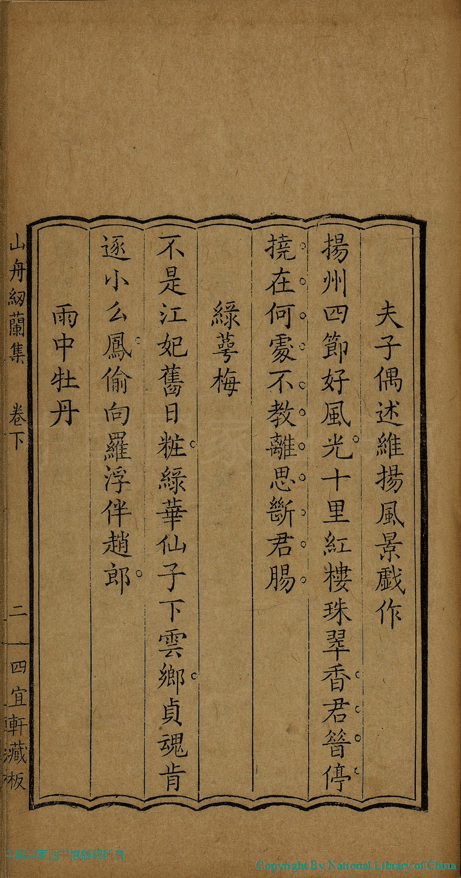 夫子偶述維揚風景戲作
揚州四節好風光十里紅樓珠翠香君曾停
撓在何處不教離思斷君腸
綠萼梅
不是江妃舊日粧綠華仙子下雲鄉貞魂肯
逐小么鳳偷向羅浮伴趙郎
雨中牡丹
山舟紉蘭集 卷下 二 四宜軒藏板
Copyright By National Library of China